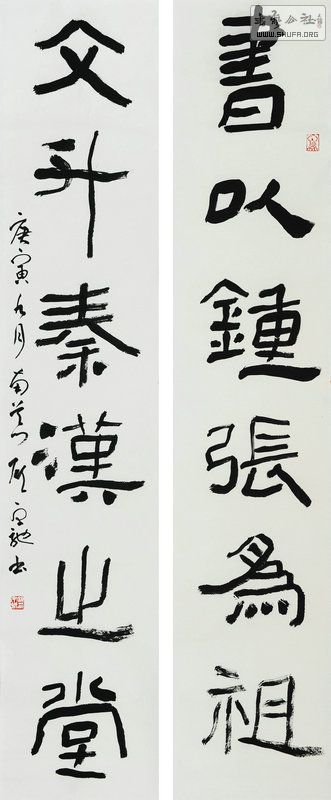 書法公社
WWW.SHUFA.ORG
書以鍾張為祖
文升秦漢之堂
庚寅九月南
書